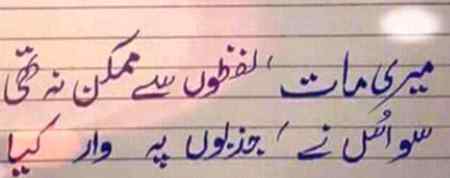 میری مات ' لفظوں سے ممکن نہ تھی
سو اُس نے ' جذبوں پہ وار کیا